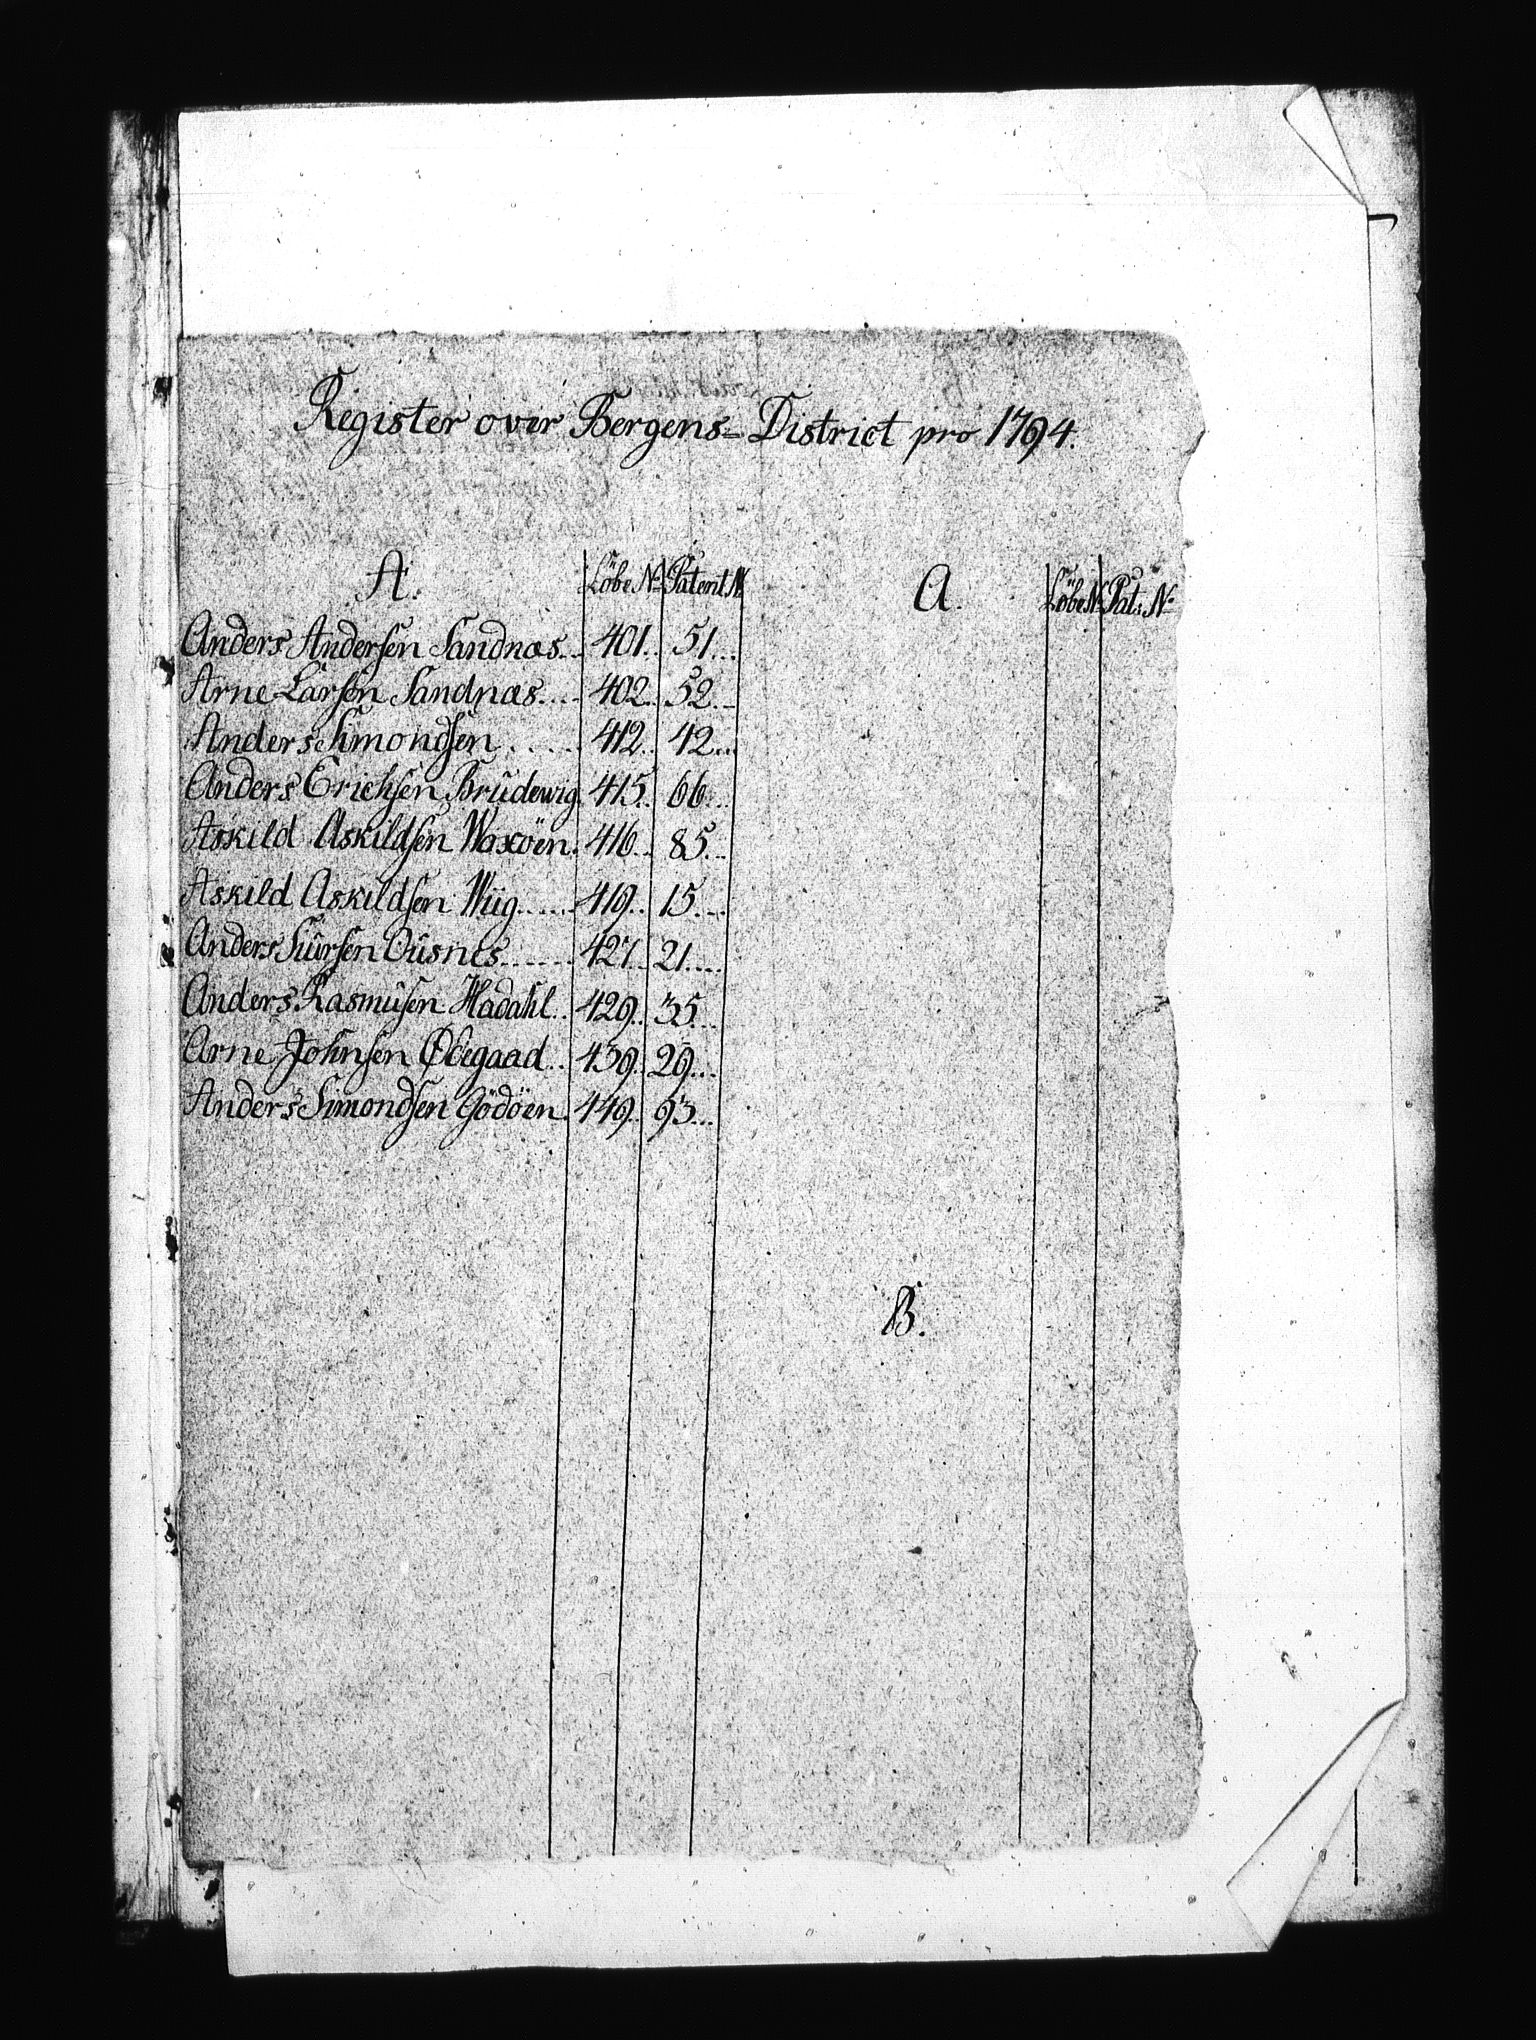 Register over Bergens= District pro 1794.
A. Löbe No Patent No
Anders Andersen Sandnæs... 401.. 51...
Arne Larsen Sandnæs.... 402.. 52..
Anders Simondsen ..... 412.. 42...
Anders Erichsen Brudewig. 415.. 66...
Askild Askildsen Waxöen. 416... 85...
Askild Askildsen Wiig...... 419.. 15...
Anders Siursen Ousnes...... 427.. 21....
Anders Rasmusen Hadahl.. 429.. 35...
Arne Johnsen Ødegaad.. 439.. 29...
Anders Simondsen Gödöen. 449.. 93...
A. Löbe No Pat: No
B.